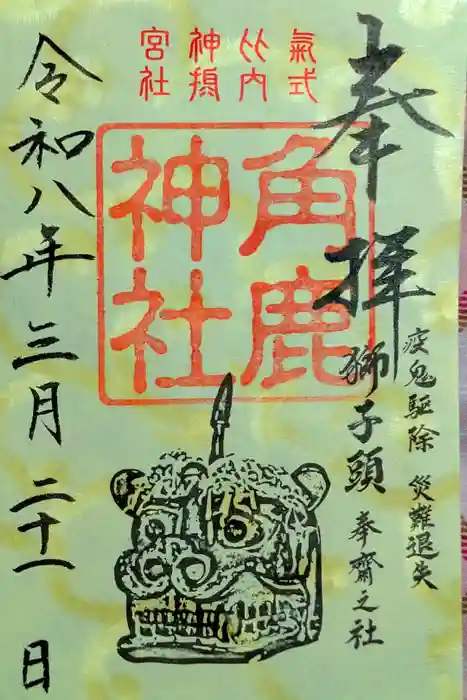 奉拝
疫鬼駆除 災難退失
獅子頭 奉齋之社
氣比神宮
式内攝社
角鹿
神社
令和八年三月二十一日